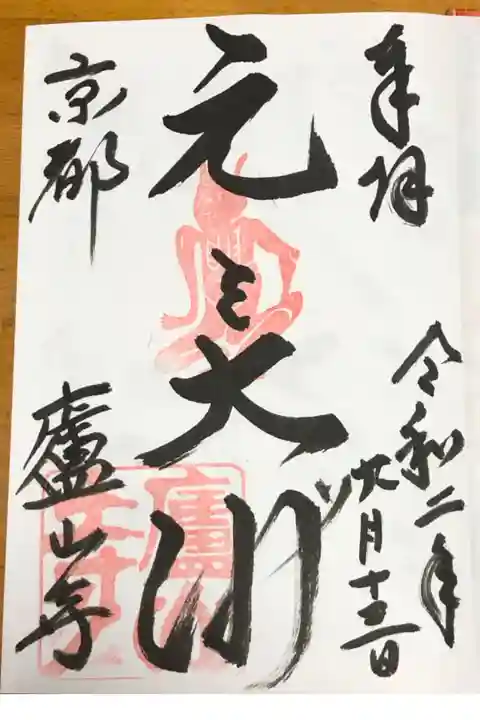 奉拝
令和二年
九月十三日
元三大師
京都
廬山寺